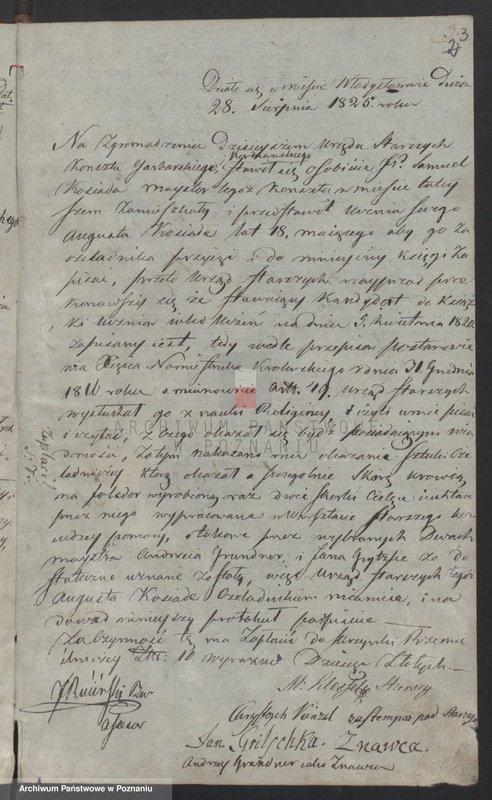 3
2
Działo się w mieście Władysławowie Dnia
28. Sierpnia 1825 roku
Na Zgromadzeniu Dzisieyszem Urzędu Starszych
Konsztu Garbarskiego, stawił się osobiście Pn. Samuel
Kosiada maystor tegoż Konsztu w mieście tutey
szem Zamieszkały i przedstawił Ucznia swego
Augusta Kosiade lat 18. maiącego aby go za
czeladnika przyiąć i do ninieyszey księgi za
pisać, przeto Urząd starszych nayprzód prze
konawszy się że stawaiący Kandydat do Książ
ki Uczniów iako Uczeń na dniu 5. kwietnia 1820
zapisany iest, tedy wedle przepisu postanowie
nia Xięcia Namiestnika Krolewskiego z dnia 31 Grudnia
1816 roku a mianowicie Artt. 19. Urząd starszych
wysłuchał go z nauki Religiney i czyli umie pisać
i czytać, z czego okazał się bydź posiadaiącym wia
domość, zatym nakazano mu okazanie sztuki Cze
ladniczey którą okazał a szczegolnie Skorę krowią
na folędor wyrobioną, oraz dwie skorki Cielęce
przez niego wyprawione w Warsztacie starszego bez
cudzey pomocy, i takowe przez wybranych Dwóch
maystrów Andrzeia Grundner i Jana za do
stateczne uznane zostały, więc Urząd starszych tegoż
Augusta Kosiade Czeladnikiem mianuie, i na
dowód ninieyszy protokuł podpisuie
Za Czynność tę ma zapłacić do skrzynki
Złt: 10. wyraźnie Dziesięć Złotych
zapłacił
M. Starszy
Assesor
Chrystoph zastempca pod Starszy
Jan Gritschka. Znawca.
Andrzey Grundner iako Znawca
ARCHIWUM PAŃSTWOWE
W POZNANIU
Archiwum Państwowe w Poznaniu